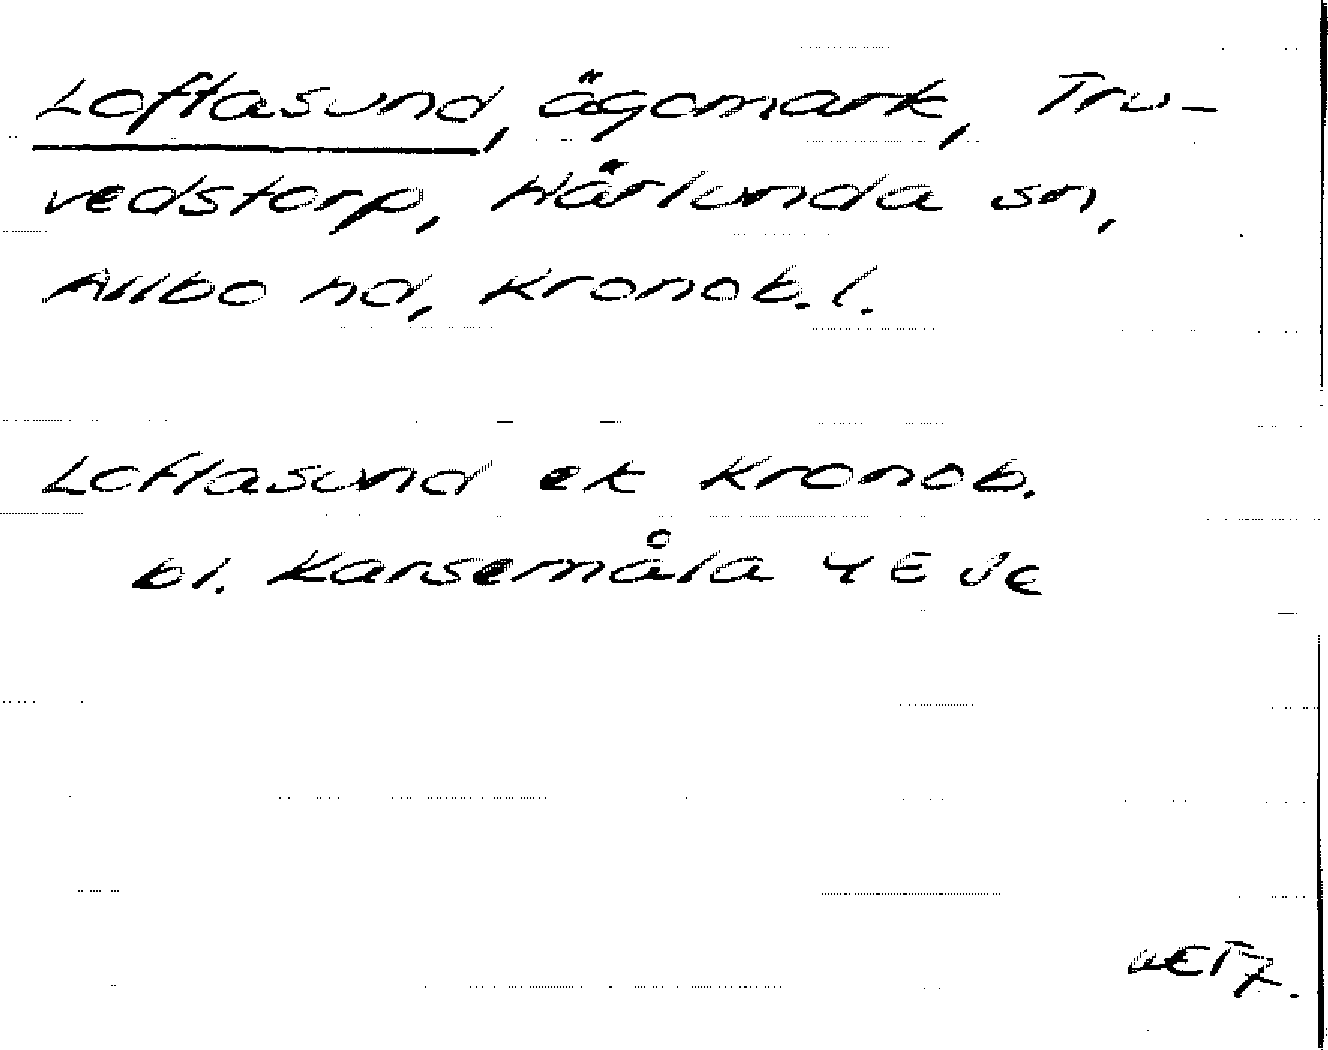 Loftasund, ägomark, Tru-
vedstorp, Härlunda sn,
Allbo hd, Kronob. l.
Loftasund ek Kronob.
bl. Karsemåla 4 E